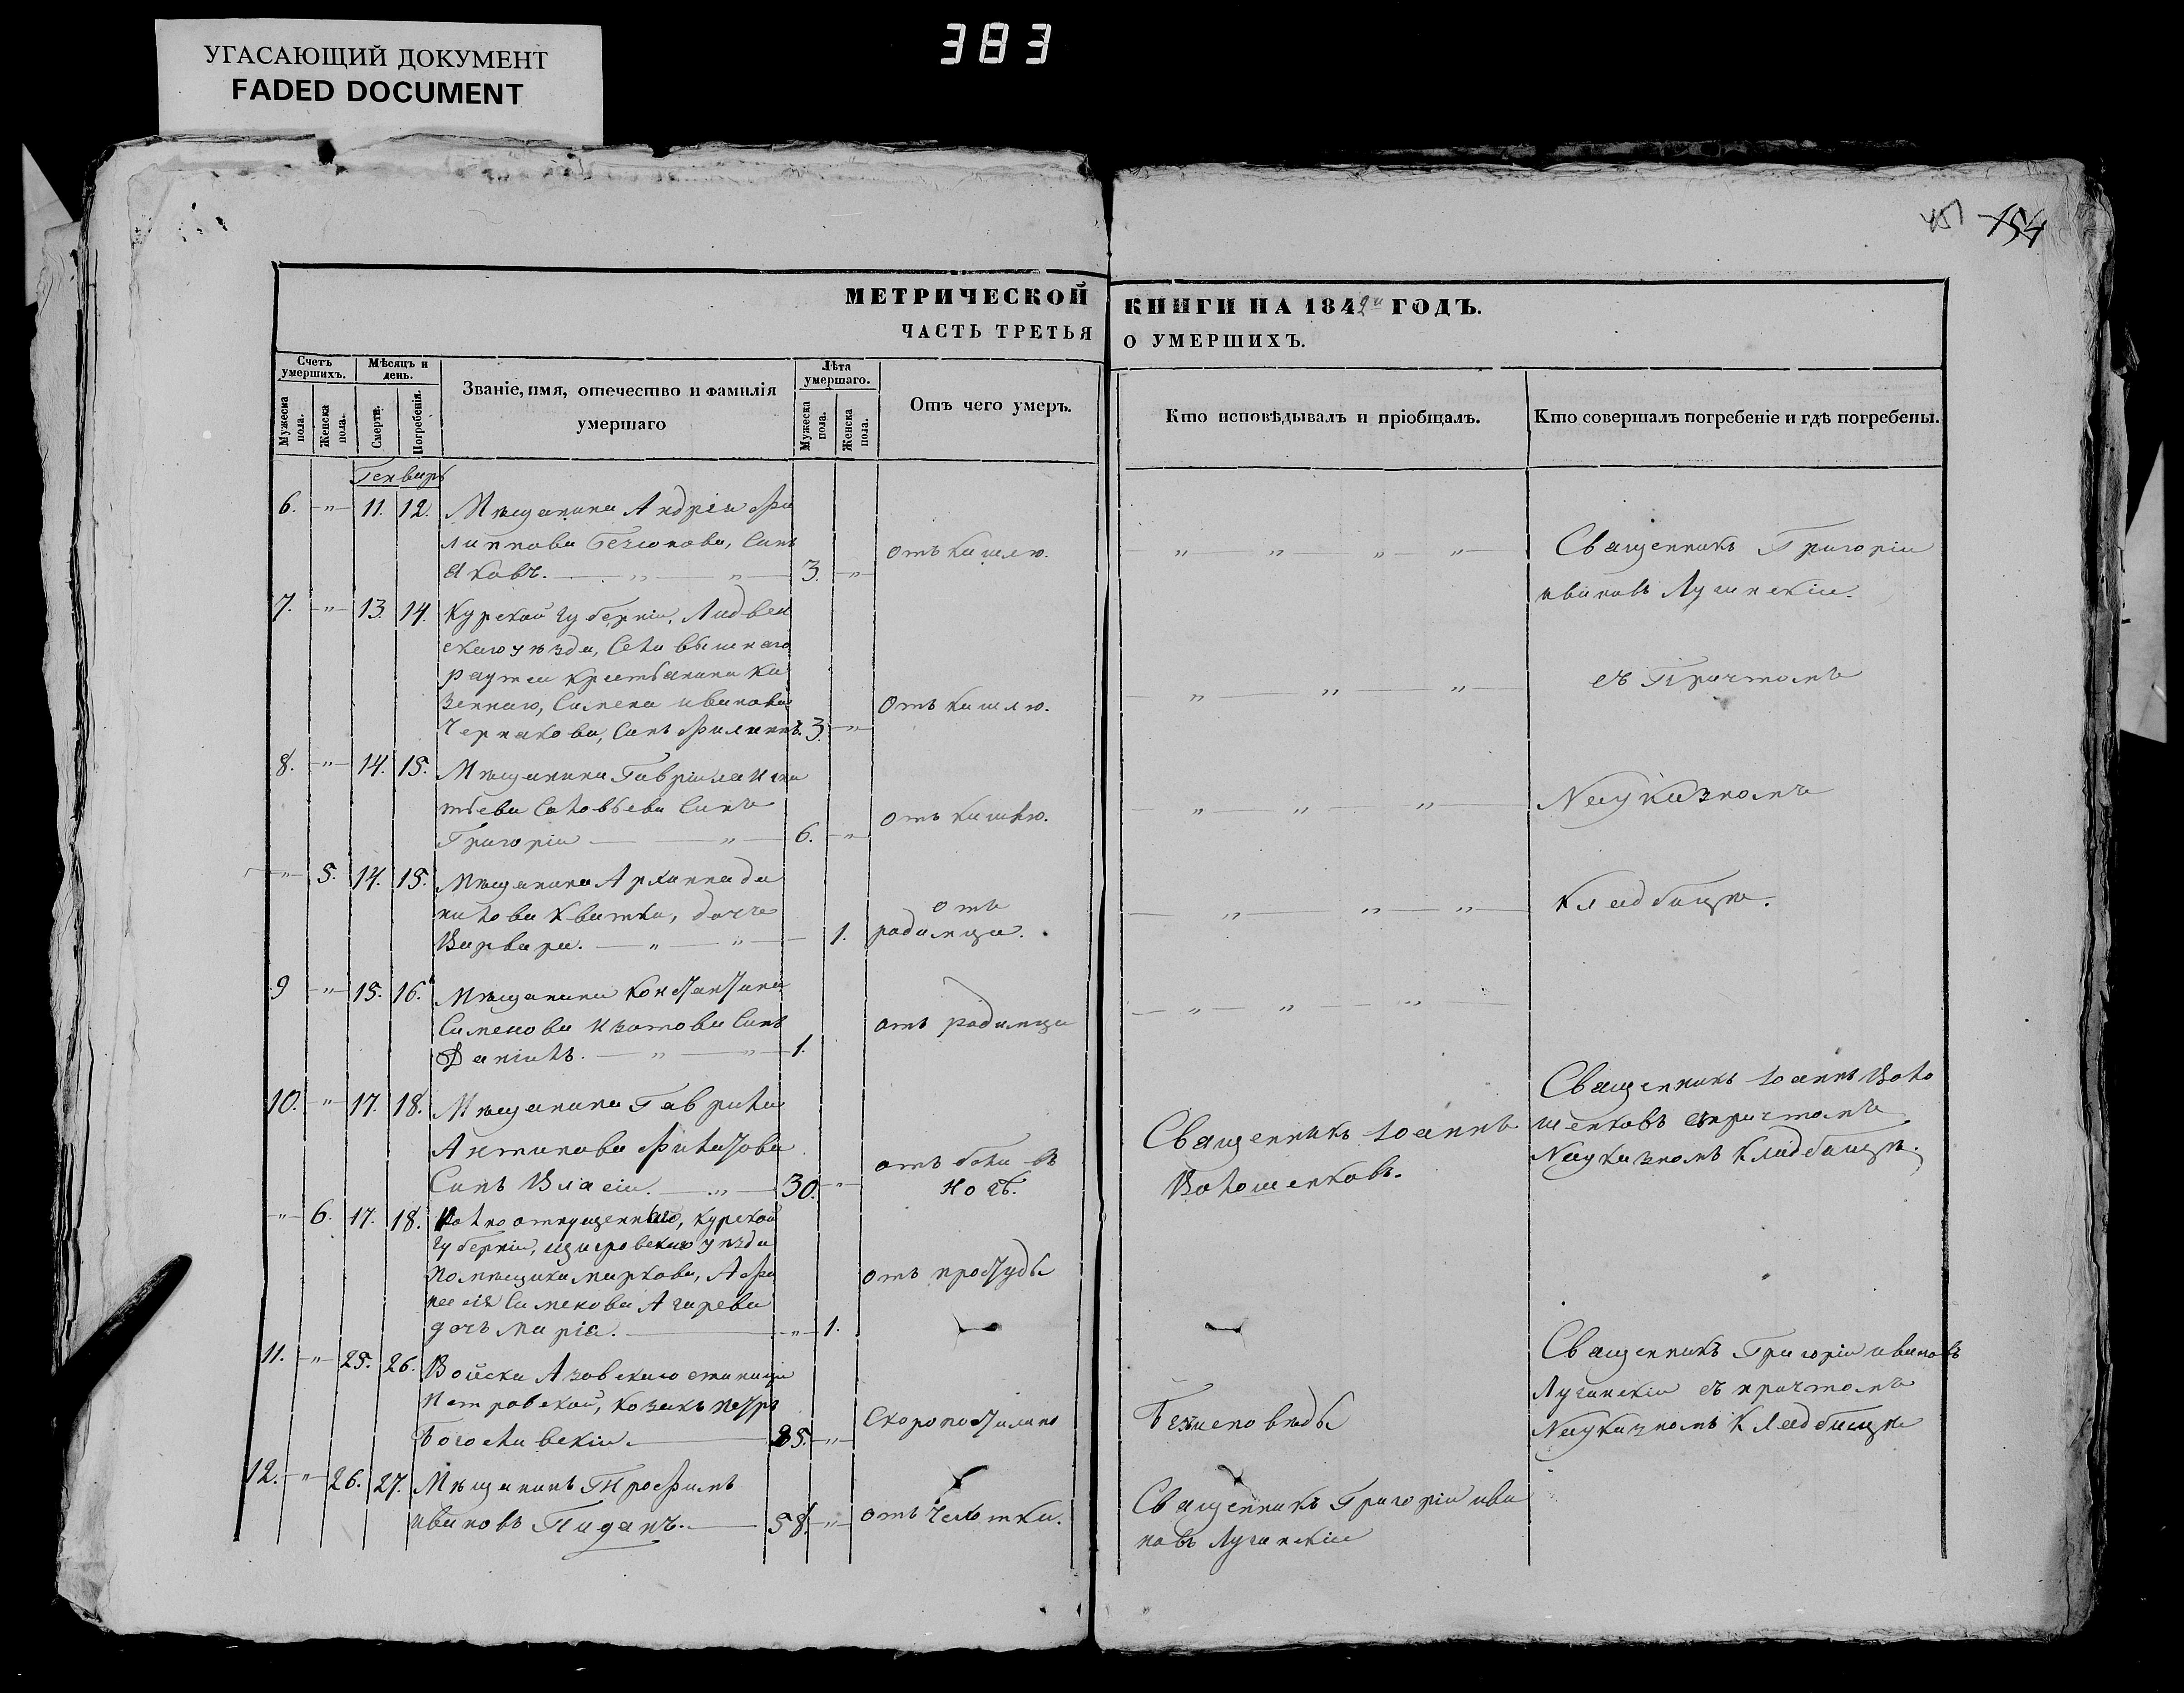 383
УГАСАЮЩИЙ ДОКУМЕНТ
FADED DOCUMENT
154
МЕТРИЧЕСКОЙ КНИГИ НА 1842й ГОДЪ.
ЧАСТЬ ТРЕТЬЯ О УМЕРШИХЪ.
Счетъ умершихъ.
Мужеска пола.
Женска пола.
Мѣсяцъ и день.
Смерти.
Погребенія.
Званіе, имя, отечество и фамилія умершаго
Лѣта умершаго.
Мужеска пола.
Женска пола.
Отъ чего умеръ.
Кто исповѣдывалъ и пріобщалъ.
Кто совершалъ погребеніе и гдѣ погребены.
Генваръ
6. „ 11. 12. Мѣщанина Андрія Фи
липпова сынъ
Яковъ. „ „ 3. „
отъ кашлю.
„ „ „ „
Священникъ Григорій
Ивановъ Лучинскій.
7. „ 13. 14. Курской губерніи,
скаго уѣзда, села вышнаго
крестьянина ка
зеннаго, Симена Иванова
Чернакова, Сынъ Филиппъ. 3. „
Отъ кашлю.
„ „ „
съ Причтомъ
8. „ 14. 15. Мѣщанина Гавріила Игна
тьева Соловьева Сынъ
Григорій „ 6. „
отъ кашлю.
„ „ „
На указномъ
„ 5. 14. 15. Мѣщанина Архиппа Да
нилова Квитка, дочь
Варвара. „ „ 1.
отъ
родимца.
„ „ „
Кладбищѣ.
9 „ 15. 16. Мѣщанина Константина
Сименова Изотова Сынъ
Даніилъ. „ „ 1.
отъ родимца
„ „ „
10. „ 17. 18. Мѣщанина Гаврила
Антипова Филатова
Сынъ Власій. „ 30. „
отъ боли въ
ногѣ.
Священникъ Іоаннъ
Волошенковъ.
Священникъ Іоаннъ Воло
шенковъ съ причтомъ
На указномъ Кладбищѣ.
„ 6. 17. 18. Вольноотпущеннаго, Курской
губерніи, щигровскаго уѣзда
Помѣщика Маркова, Афа
насія Сименова Агарева
дочь Марія. „ 1.
отъ простуды
11. „ 25. 26. Войска Азовскаго станицы
Петровской, козакъ Петръ
Богославскій. 85. „
Скоропостижно
Безъ исповѣды
Священникъ Григорій Ивановъ
Лучинскій съ причтомъ
На указномъ Кладбищѣ
12. „ 26. 27. Мѣщанинъ Трофимъ
Ивановъ 58. „
отъ Чехотки.
Священникъ Григорій Ива
новъ Лучинскій